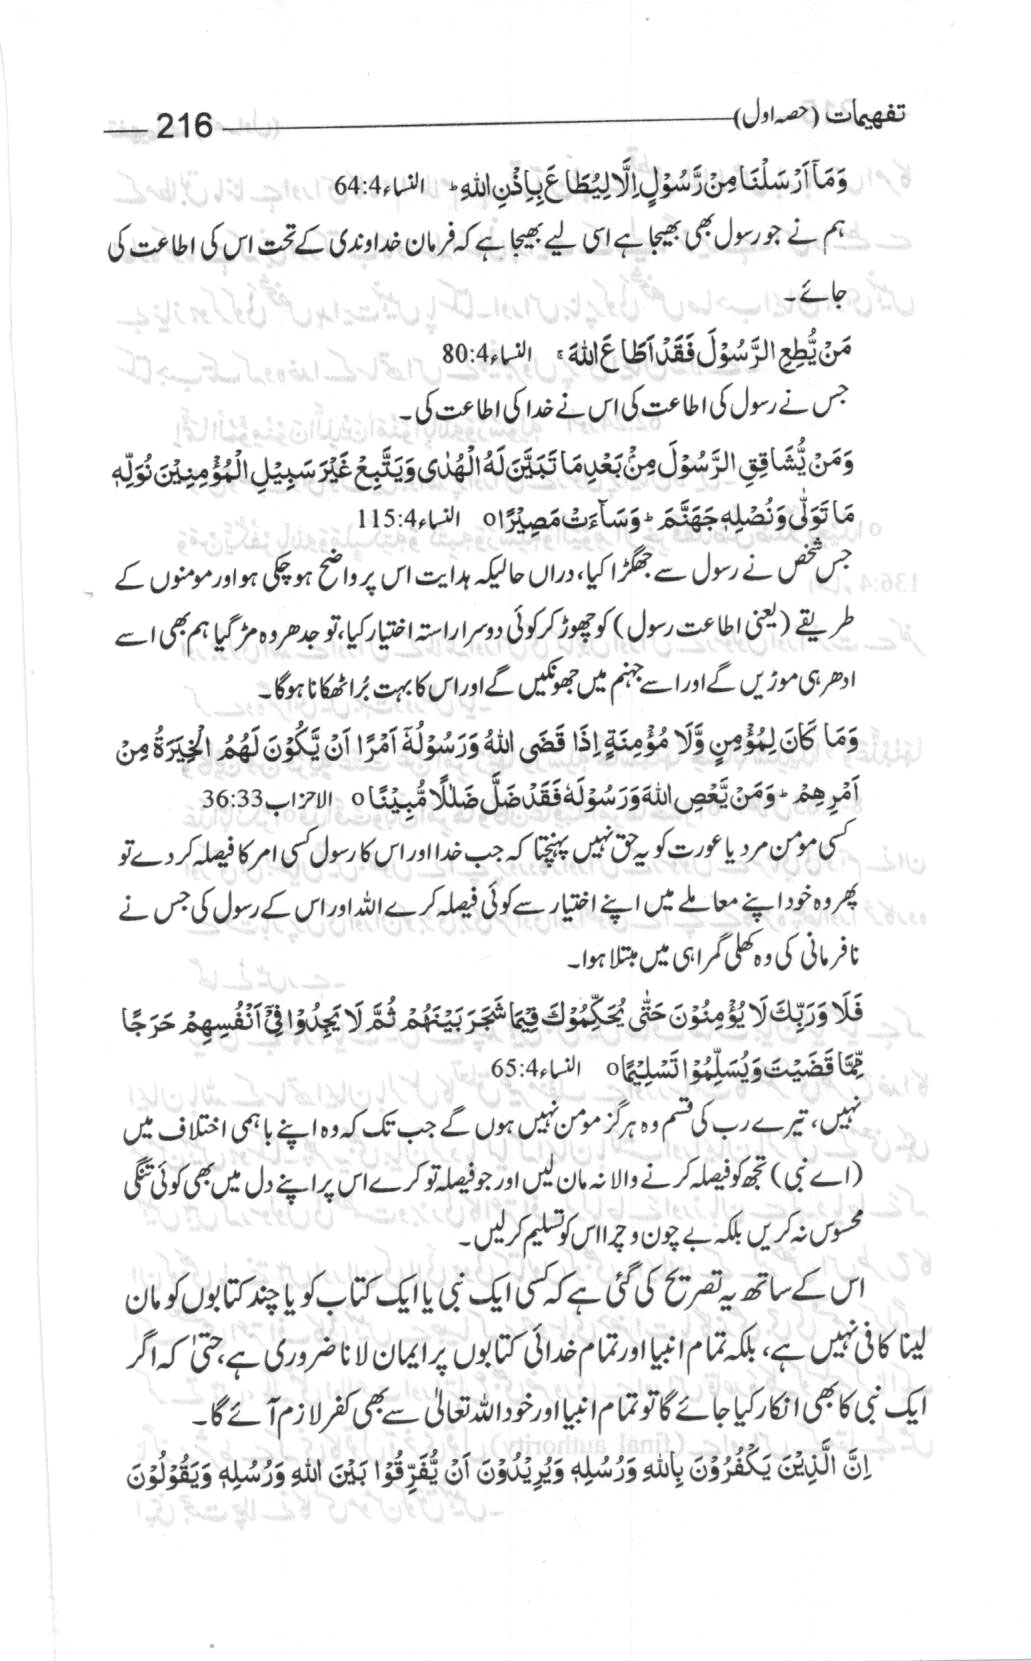 تفہیمات (حصہ اول) 216
وَمَآ اَرْسَلْنَا مِنْ رَّسُوْلٍ اِلَّا لِيُطَاعَ بِاِذْنِ اللّٰهِ ؕ النساء 64:4
ہم نے جو رسول بھی بھیجا ہے اسی لیے بھیجا ہے کہ فرمان خداوندی کے تحت اس کی اطاعت کی
جائے۔
مَنْ يُّطِعِ الرَّسُوْلَ فَقَدْ اَطَاعَ اللّٰهَ ۚ النساء 80:4
جس نے رسول کی اطاعت کی اس نے خدا کی اطاعت کی۔
وَمَنْ يُّشَاقِقِ الرَّسُوْلَ مِنْۢ بَعْدِ مَا تَبَيَّنَ لَهُ الْهُدٰى وَيَتَّبِعْ غَيْرَ سَبِيْلِ الْمُؤْمِنِيْنَ نُوَلِّهٖ
مَا تَوَلّٰى وَنُصْلِهٖ جَهَنَّمَ ؕ وَسَآءَتْ مَصِيْرًا ο النساء 115:4
جس شخص نے رسول سے جھگڑا کیا، دراں حالیکہ ہدایت اس پر واضح ہو چکی ہو اور مومنوں کے
طریقے (یعنی اطاعت رسول) کو چھوڑ کر کوئی دوسرا راستہ اختیار کیا، تو جدھر وہ مڑ گیا ہم بھی اسے
ادھر ہی موڑیں گے اور اسے جہنم میں جھونکیں گے اور اس کا بہت بُرا ٹھکانا ہوگا۔
وَمَا كَانَ لِمُؤْمِنٍ وَّلَا مُؤْمِنَةٍ اِذَا قَضَى اللّٰهُ وَرَسُوْلُهٗٓ اَمْرًا اَنْ يَّكُوْنَ لَهُمُ الْخِيَرَةُ مِنْ
اَمْرِهِمْ ؕ وَمَنْ يَّعْصِ اللّٰهَ وَرَسُوْلَهٗ فَقَدْ ضَلَّ ضَلٰلًا مُّبِيْنًا ο الاحزاب 36:33
کسی مومن مرد یا عورت کو یہ حق نہیں پہنچتا کہ جب خدا اور اس کا رسول کسی امر کا فیصلہ کر دے تو
پھر وہ خود اپنے معاملے میں اپنے اختیار سے کوئی فیصلہ کرے اللہ اور اس کے رسول کی جس نے
نافرمانی کی وہ کھلی گمراہی میں مبتلا ہوا۔
فَلَا وَرَبِّكَ لَا يُؤْمِنُوْنَ حَتّٰى يُحَكِّمُوْكَ فِيْمَا شَجَرَ بَيْنَهُمْ ثُمَّ لَا يَجِدُوْا فِيْٓ اَنْفُسِهِمْ حَرَجًا
مِّمَّا قَضَيْتَ وَيُسَلِّمُوْا تَسْلِيْمًا ο النساء 65:4
نہیں، تیرے رب کی قسم وہ ہرگز مومن نہیں ہوں گے جب تک کہ وہ اپنے باہمی اختلاف میں
(اے نبی) تجھ کو فیصلہ کرنے والا نہ مان لیں اور جو فیصلہ تو کرے اس پر اپنے دل میں بھی کوئی تنگی
محسوس نہ کریں بلکہ بے چون و چرا اس کو تسلیم کرلیں۔
اس کے ساتھ یہ تصریح کی گئی ہے کہ کسی ایک نبی یا ایک کتاب کو یا چند کتابوں کو مان
لینا کافی نہیں ہے، بلکہ تمام انبیا اور تمام خدائی کتابوں پر ایمان لانا ضروری ہے، حتیٰ کہ اگر
ایک نبی کا بھی انکار کیا جائے گا تو تمام انبیا اور خود اللہ تعالیٰ سے بھی کفر لازم آئے گا۔
اِنَّ الَّذِيْنَ يَكْفُرُوْنَ بِاللّٰهِ وَرُسُلِهٖ وَيُرِيْدُوْنَ اَنْ يُّفَرِّقُوْا بَيْنَ اللّٰهِ وَرُسُلِهٖ وَيَقُوْلُوْنَ